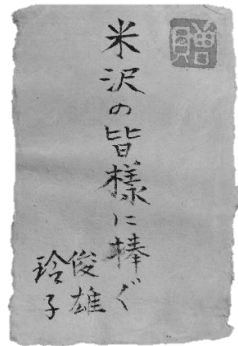 贈
米沢の皆様に棒ぐ
俊雄
玲子